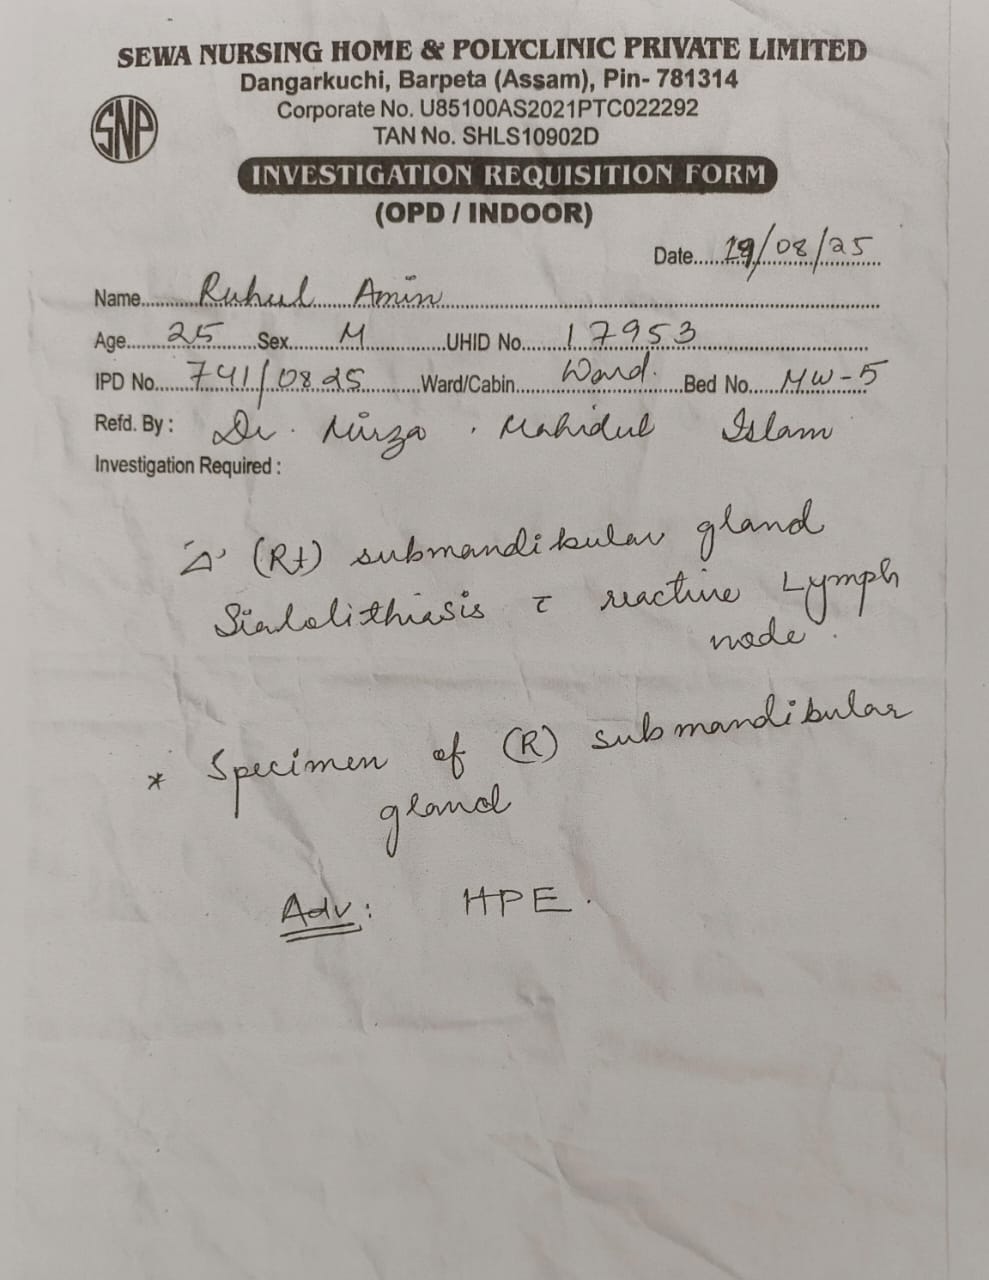 SEWA NURSING HOME & POLYCLINIC PRIVATE LIMITED
Dangarkuchi, Barpeta (Assam), Pin- 781314
Corporate No. U85100AS2021PTC022292
TAN No. SHLS10902D
SNP
INVESTIGATION REQUISITION FORM
(OPD / INDOOR)
Date.....19/08/25
Name.......Ruhul Amin
Age.......25 Sex.......M UHID No.......17953
IPD No.....741/0825 Ward/Cabin.......Ward. Bed No.....MW-5
Refd. By : Dr. Mirza. Mahidul Islam
Investigation Required :
Δ' (Rt) submandibular gland
Sialolithiasis c̄ reactive Lymph
node.
* Specimen of (R) submandibular
gland
Adv: HPE.